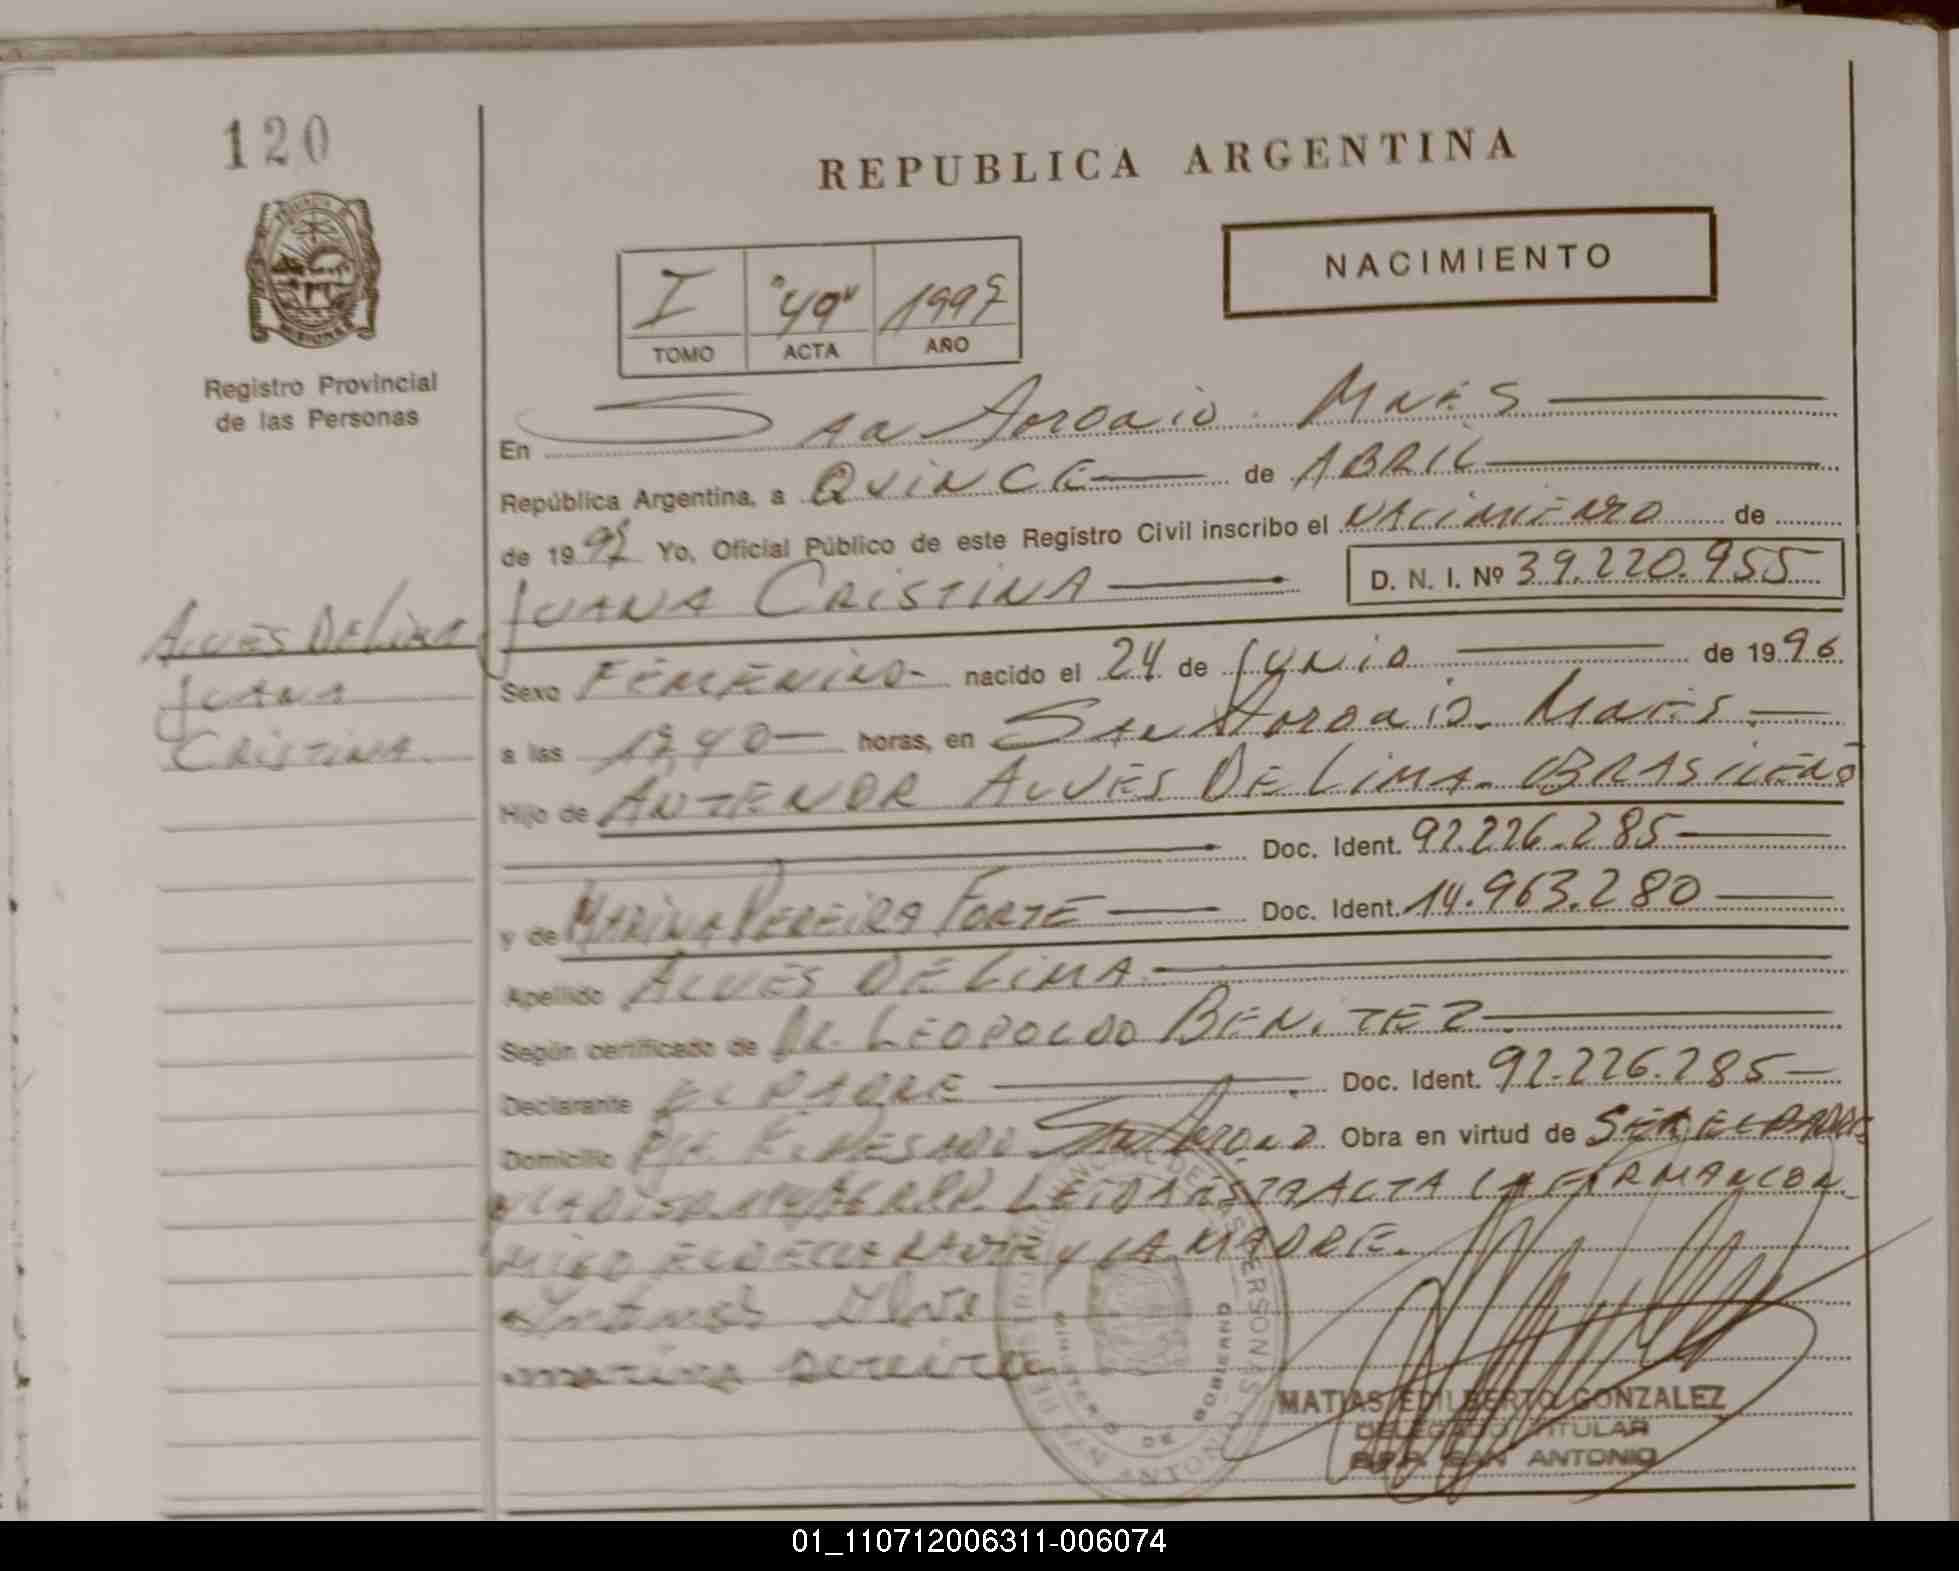 120
REPUBLICA ARGENTINA
NACIMIENTO
I "49"
TOMO ACTA AÑO
Registro Provincial
de las Personas
En San Antonio Mnes
República Argentina, a QUINCE de ABRIL
de 19 Yo, Oficial Público de este Registro Civil inscribo el NACIMIENTO de
JUANA CRISTINA D. N. I. Nº 39.220.955
ALVES DE LIMA
JUANA
CRISTINA
Sexo FEMENINO nacido el 24 de Junio de 1996
a las horas, en San Antonio Mnes
Hijo de ANTENOR ALVES DE LIMA. BRASILEÑO
Doc. Ident. 92.226.285
y de MARINA PEREIRA FORTE Doc. Ident. 14.963.280
Apellido ALVES DE LIMA
Según certificado de DR. LEOPOLDO BENITEZ
Declarante EL PADRE Doc. Ident. 92.226.285
Domicilio San Antonio Obra en virtud de SER EL PADRE
LEIDA ESTA ACTA LA FIRMAN CON
MIGO EL DECLARANTE y LA MADRE.
marina pereira
REGISTRO PROVINCIAL DE LAS PERSONAS
MINISTERIO DE GOBIERNO
SAN ANTONIO
MATIAS EDILBERTO GONZALEZ
DELEGADO TITULAR
R.P.P. SAN ANTONIO
01_110712006311-006074